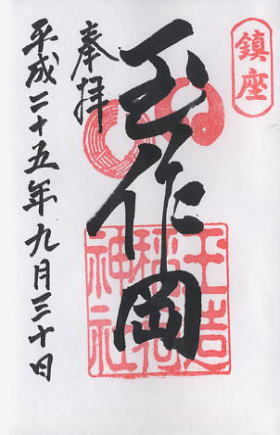 鎮座
玉作岡
玉造
稲荷
神社
奉拝
平成二十五年九月三十日